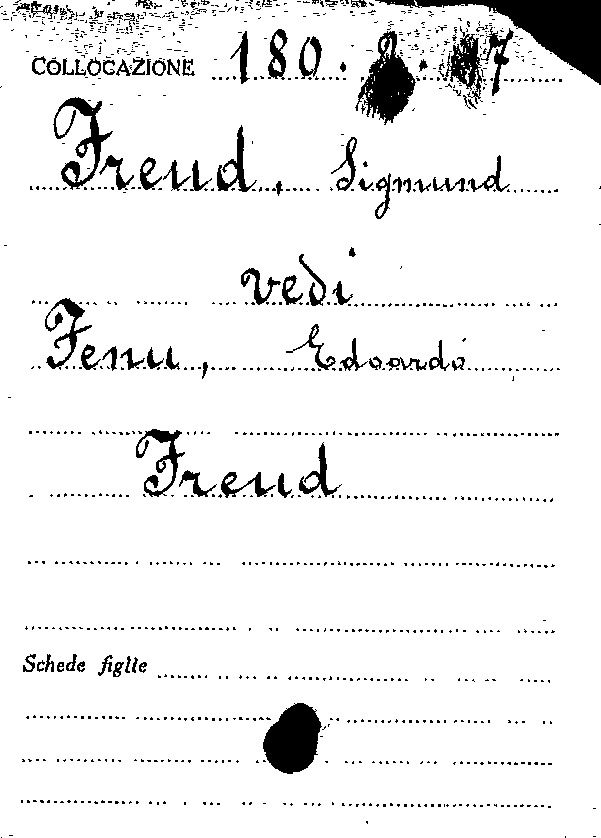 COLLOCAZIONE 180.
Freud, Sigmund
vedi
Fenu, Edoardo
Freud
Schede figlie